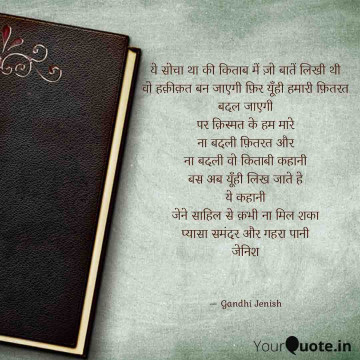 ये सोचा था की किताब में ज़ो बातें लिखी थी
वो हक़ीक़त बन जाएगी फ़िर यूँही हमारी फ़ितरत
बदल जाएगी
पर क़िस्मत के हम मारे
ना बदली फ़ितरत और
ना बदली वो किताबी कहानी
बस अब यूँही लिख जाते है
ये कहानी
जेने साहिल से क़भी ना मिल शका
प्यासा समंदर और गहरा पानी
जेनिश
— Gandhi Jenish
YourQuote.in